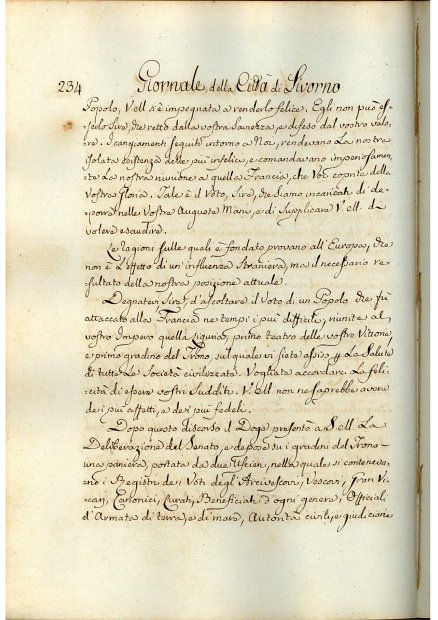 234 Giornale della Città di Livorno
Popolo, V. M. s'è impegnata a renderlo felice. Egli non può es-
serlo Sire, che retto dalla vostra Saviezza, e difeso dal vostro valo-
re. I cangiamenti seguiti intorno a Noi, rendevano La nostra
isolata esistenza delle più infelice, e comandavano imperiosamen-
te La nostra riunione a quella Francia, che Voi coprite della
vostra gloria. Tale è il Voto, Sire, che siamo incaricati di de-
porre nelle Vostre Auguste Mani, e di Supplicare V. M. di
volere esaudire.
Le Ragioni sulle quali è fondato provano all'Europa, che
non è L'effetto di un'influenza Straniera, ma il necessario re-
sultato della nostra posizione attuale.
Degnatevi Sire, d'ascoltare il Voto di un Popolo che fu
attaccato alla Francia ne tempi i più difficili, riunite al
vostro Impero quella Liguria, primo teatro delle vostre Vittorie,
e primo gradino del Trono, sul quale vi siete assiso p. La Salute
di tutte Le Società civilizzate. Vogliate accordarci La feli-
cità di essere vostri Sudditi. V. M. non ne saprebbe avere
dei più affetti, e dei più fedeli.
Dopo questo discorso il Doge presentò a S. M. La
Deliberazione del Senato, e depose su i gradini del Trono
una paniera, portata da due Uscieri, nella quale si conteneva-
no i Registri dei Voti degl'Arcivescovi, Vescovi, Gran Vi-
carj, Canonici, Curati, Beneficiati d'ogni genere, Officiali
d'Armata di terra, e di mare, Autorità civili, e giudiciarie